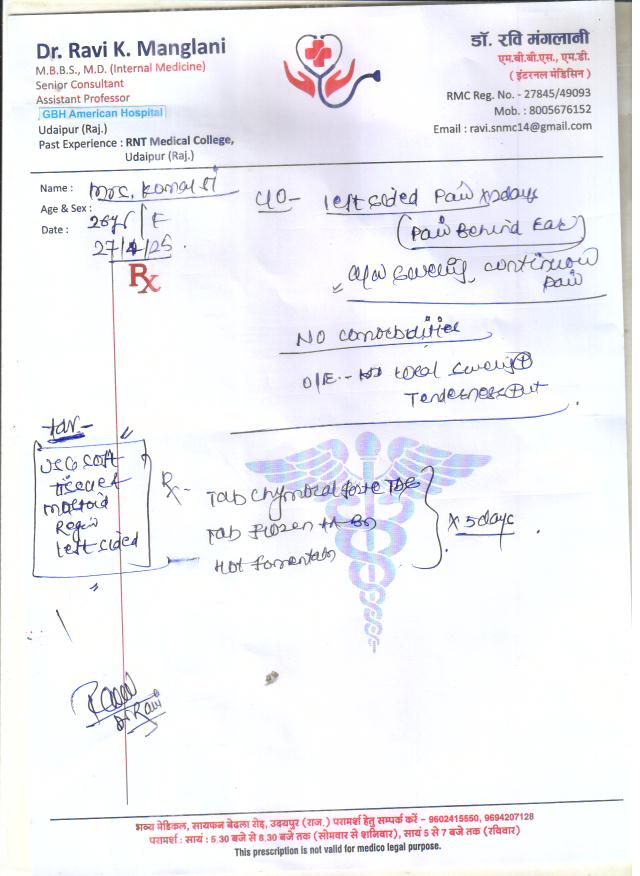 Dr. Ravi K. Manglani
M.B.B.S., M.D. (Internal Medicine)
Senior Consultant
Assistant Professor
GBH American Hospital
Udaipur (Raj.)
Past Experience : RNT Medical College,
Udaipur (Raj.)
डॉ. रवि मंगलानी
एम.बी.बी.एस., एम.डी.
( इंटरनल मेडिसिन )
RMC Reg. No. - 27845/49093
Mob. : 8005676152
Email : ravi.snmc14@gmail.com
Name : Mrs. Komal
Age & Sex : 28yr / F
Date : 27/4/25
Rx
C/O - left sided Pain x 2days
(Pain Behind Ear)
swelling, continuous
pain
NO comorbidities
O/E - local swelling ⊕
Tenderness ⊕
Adv -
USG soft
tissue
mastoid
Region
left sided
Rx - Tab Chymoral forte TDS
Tab BD
Hot fomentation
x 5days
Dr Ravi
भव्य मेडिकल, सायफन बेढला रोड़, उदयपुर (राज.) परामर्श हेतु सम्पर्क करें - 9602415550, 9694207128
परामर्श : सायं : 5.30 बजे से 8.30 बजे तक (सोमवार से शनिवार), सायं 5 से 7 बजे तक (रविवार)
This prescription is not valid for medico legal purpose.